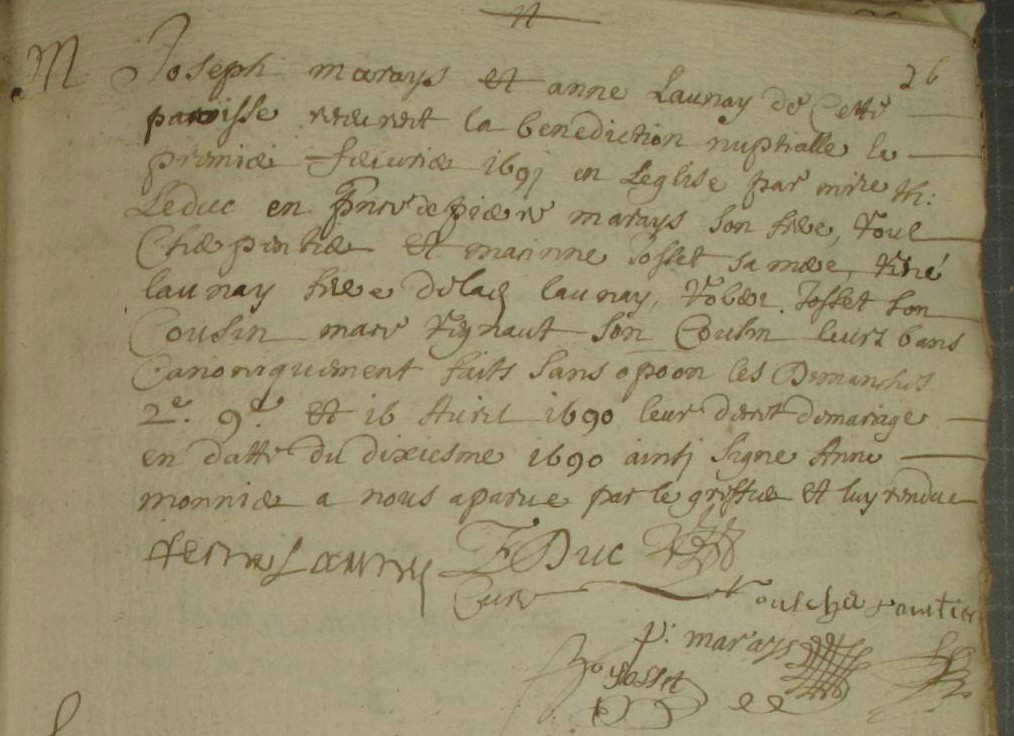 n
26
M Joseph marays et anne Launay de Cette
paroisse recurent la benediction nuptialle le
premier feuurier 1691 en Leglise par mire th:
Leduc en de pierre marays son frere, Toul
Charpentier et marinne Josset sa mere, René
launay frere de lad launay, Josset son
Cousin marc Reynaut son Cousin leurs bans
Canoniquement faits sans opoon les Dimanches
2e. 9e. Et 16 Auril 1690 leur decret de mariage
en datte du dixiesme 1690 ainsj signe Anne
monnier a nous aparue par le greffier et luy rendue
Launay Duc
Cure Toulcharpantier
p: marays
Josset